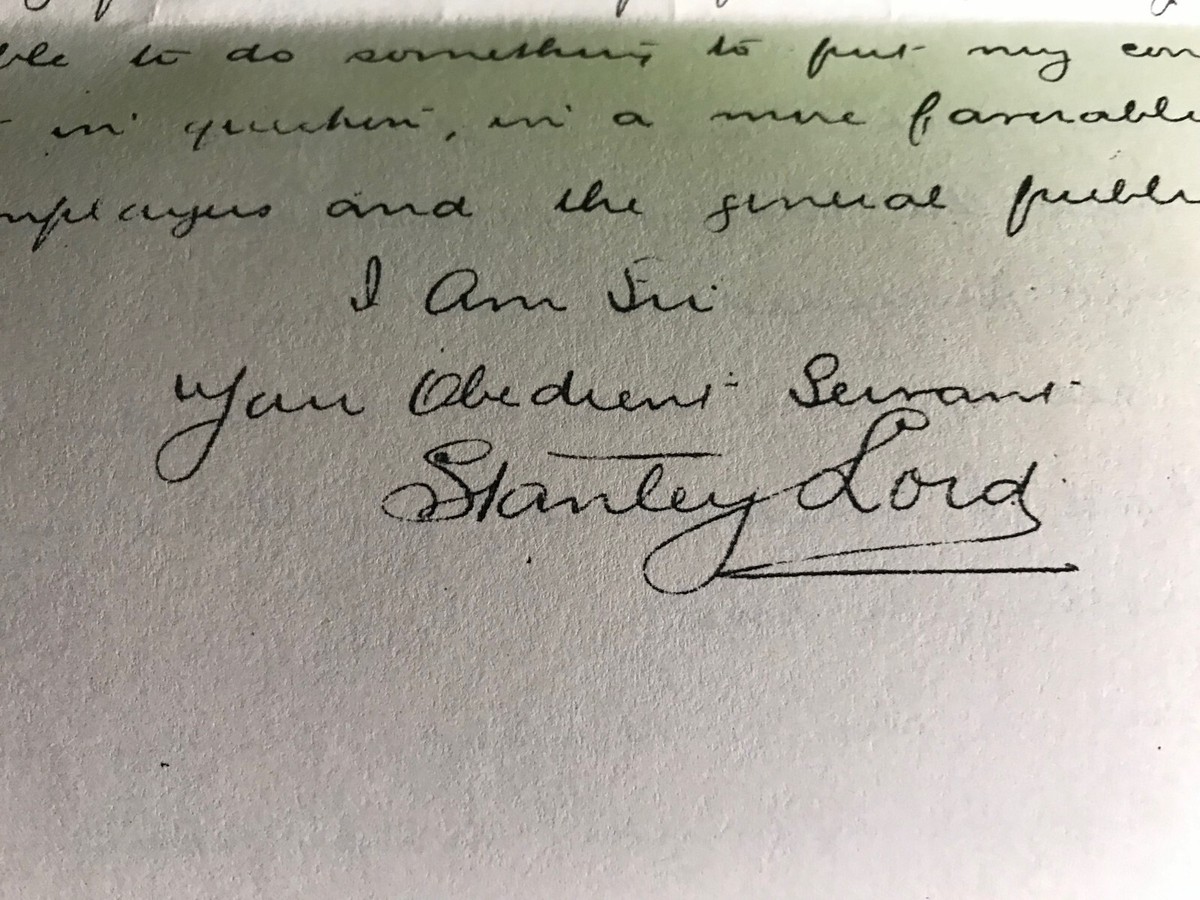 ble to do something to put my con
in question, in a more favorable
mployers and the general publi
I Am Sir
Your Obedient Servant
Stanley Lord